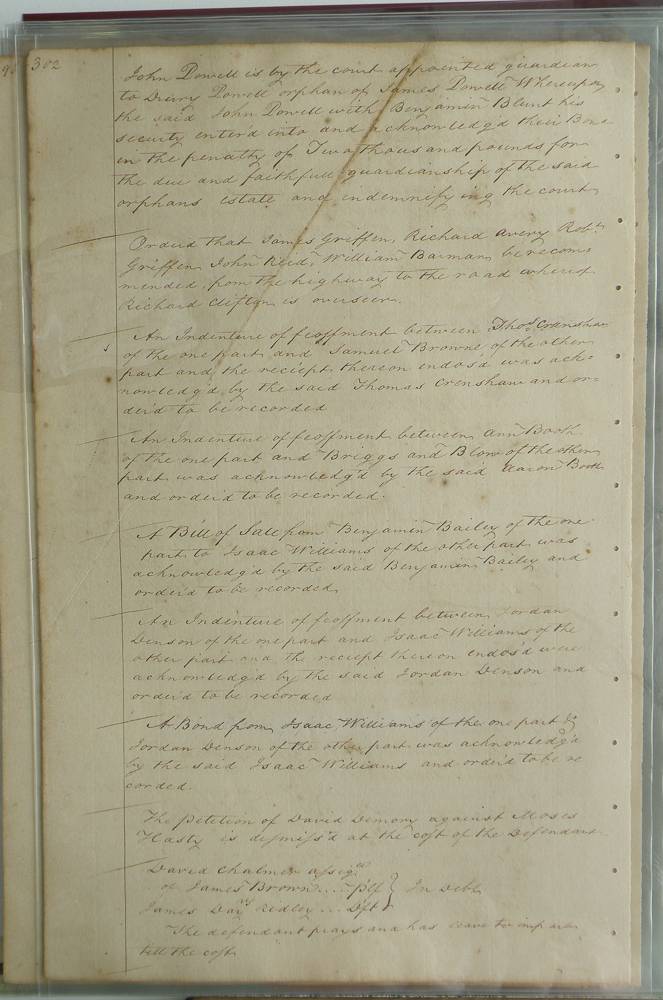 302
John Powell is by the court appointed guardian
to Drury Powell orphan of James Powell Whereupon
the said John Powell with Benjamin Blunt his
security enterd into and acknowledg'd their Bond
in the penalty of Two thousand pounds for
the due and faithfull guardianship of the said
orphans Estate and indemnifying the court
Orderd that James Griffen, Richard Avery Robt
Griffen, John Reid, William Barman, be recom
mended, from the highway to the road whereof
Richard Clifton is overseer.
An Indenture of feoffment between Thos. Crenshaw
of the one part and Samuel Browne of the other
part and the reciept thereon endos'd was ack=
nowledg'd by the said Thomas Crenshaw and or=
der'd to be recorded
An Indenture of feoffment between Ann Booth
of the one part and Briggs and Blow of the other
part was acknowledg'd by the said Aaron Booth
and order'd to be recorded.
A Bill of Sale from Benjamin Bailey of the one
part to Isaac Williams of the other part was
acknowledg'd by the said Benjamin Bailey and
order'd to be recorded
An Indenture of feoffment between Jordan
Denson of the one part and Isaac Williams of the
other part and the reciept thereon endos'd were
acknowledg'd by the said Jordan Denson and
order'd to be recorded
A Bond from Isaac Williams of the one part to
Jordan Denson of the other part was acknowledg'd
by the said Isaac Williams and order'd to be re
corded.
The petition of David Demory against Moses
Hasty is dismiss'd at the cost of the Defendant
David Chalmer assigee
of James Brown ... Plf } In Debt
James Day Ridley ... Dft
The defendant prays and has leave to imparle
till the cost